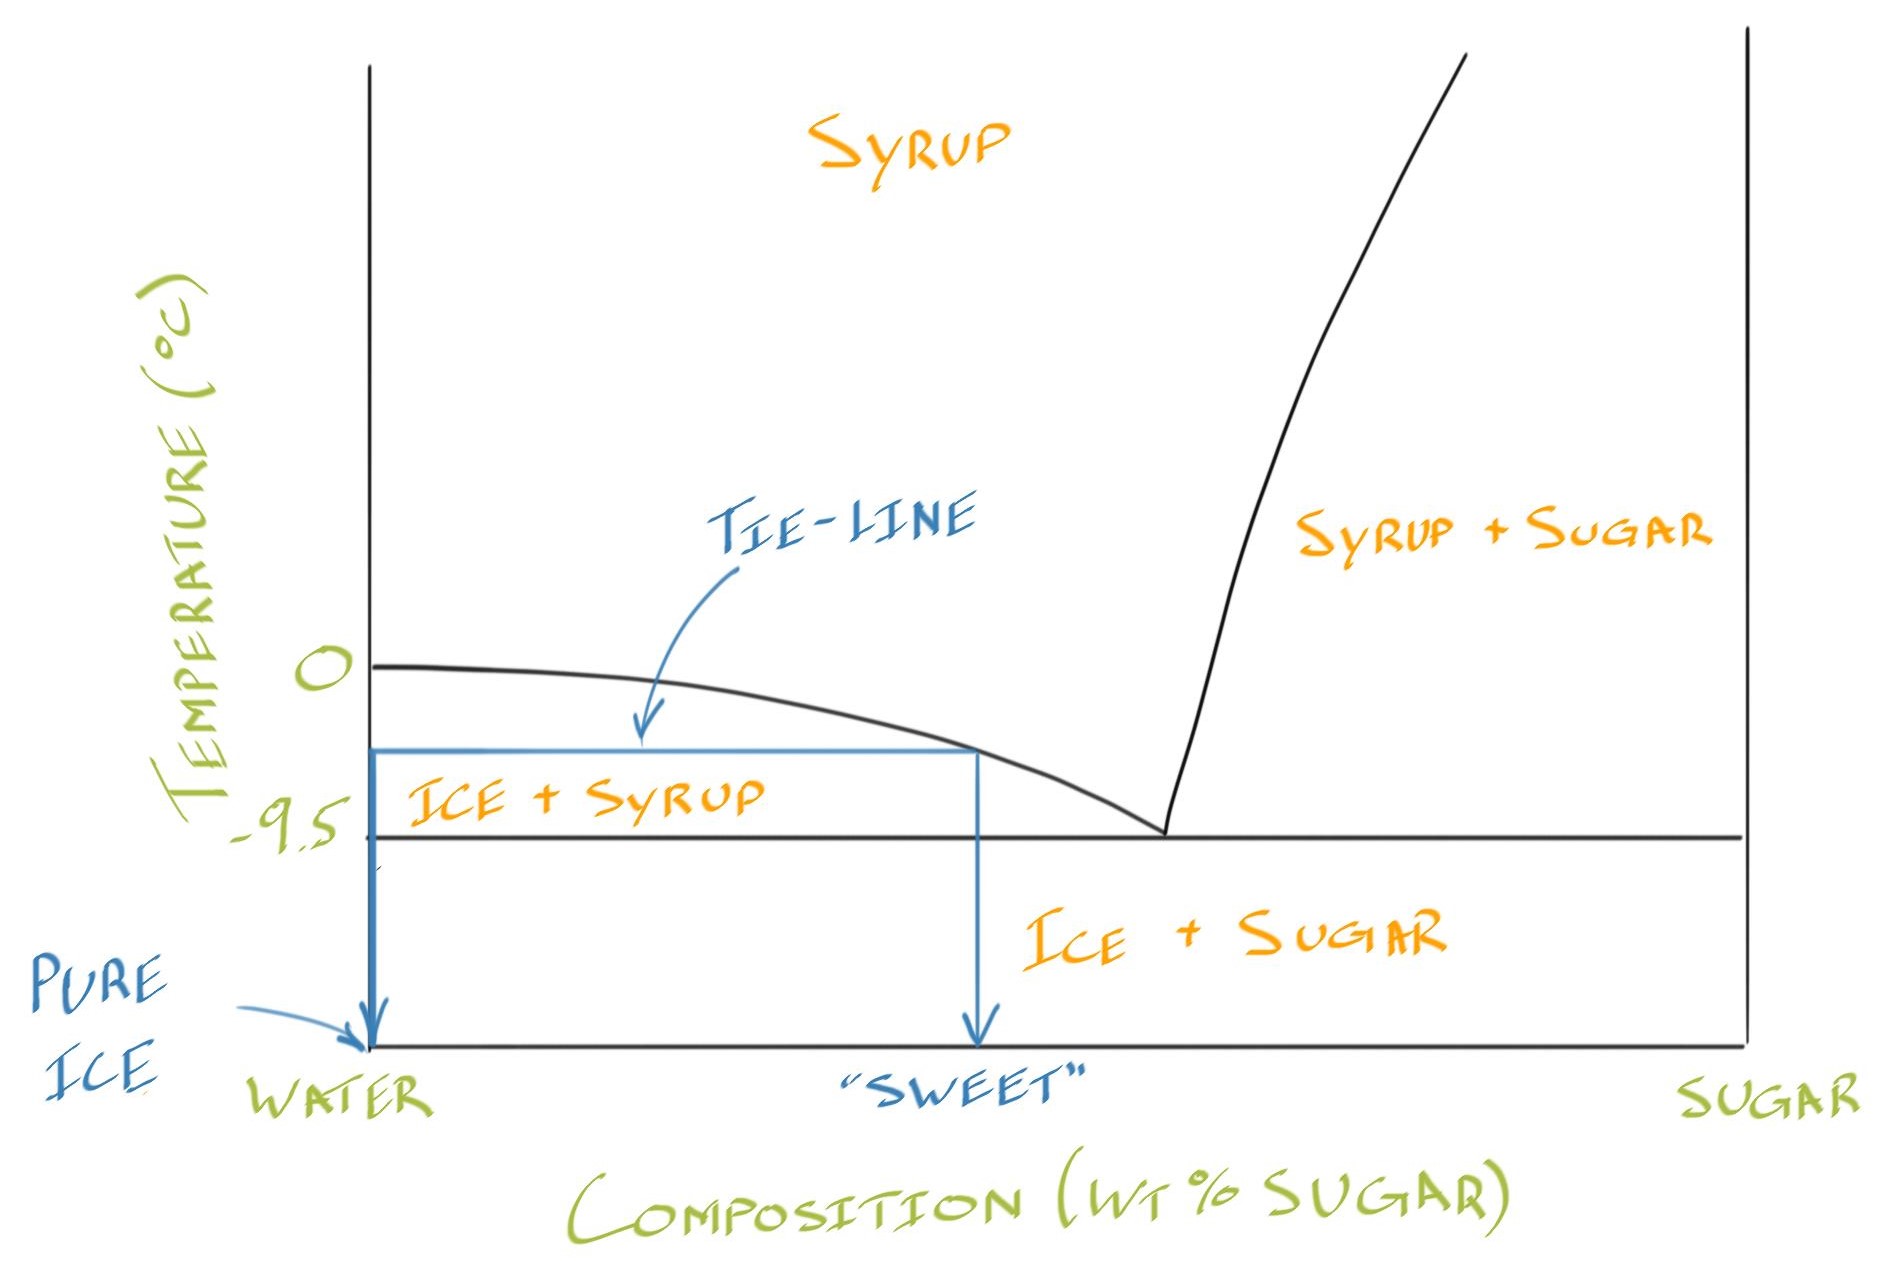 SYRUP
TEMPERATURE (°C)
TIE-LINE
SYRUP + SUGAR
0
ICE + SYRUP
-9.5
ICE + SUGAR
PURE
ICE
WATER
"SWEET"
SUGAR
COMPOSITION (WT % SUGAR)